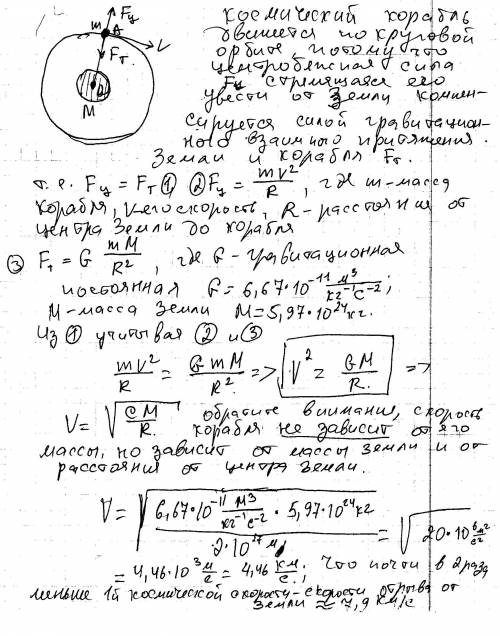 m Fц
A
Fт. V
M
Космический корабль
движется по круговой
орбите, потому что
центробежная сила
Fц стремящаяся его
увести от Земли компен-
сируется силой гравитацион-
ного взаимного притяжения.
Земли и корабля Fт.
т.е. Fц = Fт ① ② Fц = mV²/R, где m-масса
корабля, V-его скорость, R - расстояния от
центра Земли до корабля
③ Fт = G mM/R², где G - гравитационная
постоянная G = 6,67·10⁻¹¹ м³/кг⁻¹с⁻²;
M-масса Земли M = 5,97·10²⁴кг.
Из ① учитывая ② и ③
mV²/R = GmM/R² => V² = GM/R. =>
V = √GM/R. обратите внимание, скорость
корабля не зависит от его
массы, но зависит от массы Земли и от
расстояния от центра Земли.
V = √6,67·10⁻¹¹ м³/кг⁻¹с⁻² · 5,97·10²⁴кг / 2·10¹⁷ м = √20·10⁶ м²/с²
= 4,46·10³ м/с = 4,46 км/с. Что почти в 2 раза
меньше 1й космической скорости-скорости отрыва от
Земли ≈ 7,9 км/с